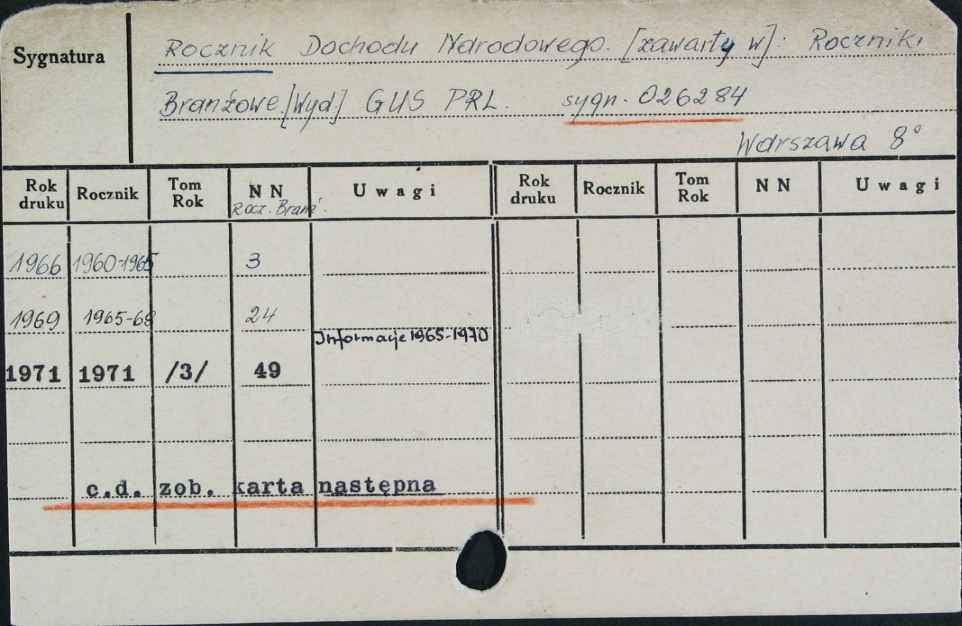 Sygnatura
Rocznik Dochodu Narodowego. [zawarty w]: Roczniki
Branżowe.[Wyd] GUS PRL. sygn. 026284
Warszawa 8°
Rok druku Rocznik Tom Rok NN Uwagi Rok druku Rocznik Tom Rok NN Uwagi
Rocz. Branż.
1966 1960-1965 3
1969 1965-68 24
Informacje 1965-1970
1971 1971 /3/ 49
c.d. zob. karta następna